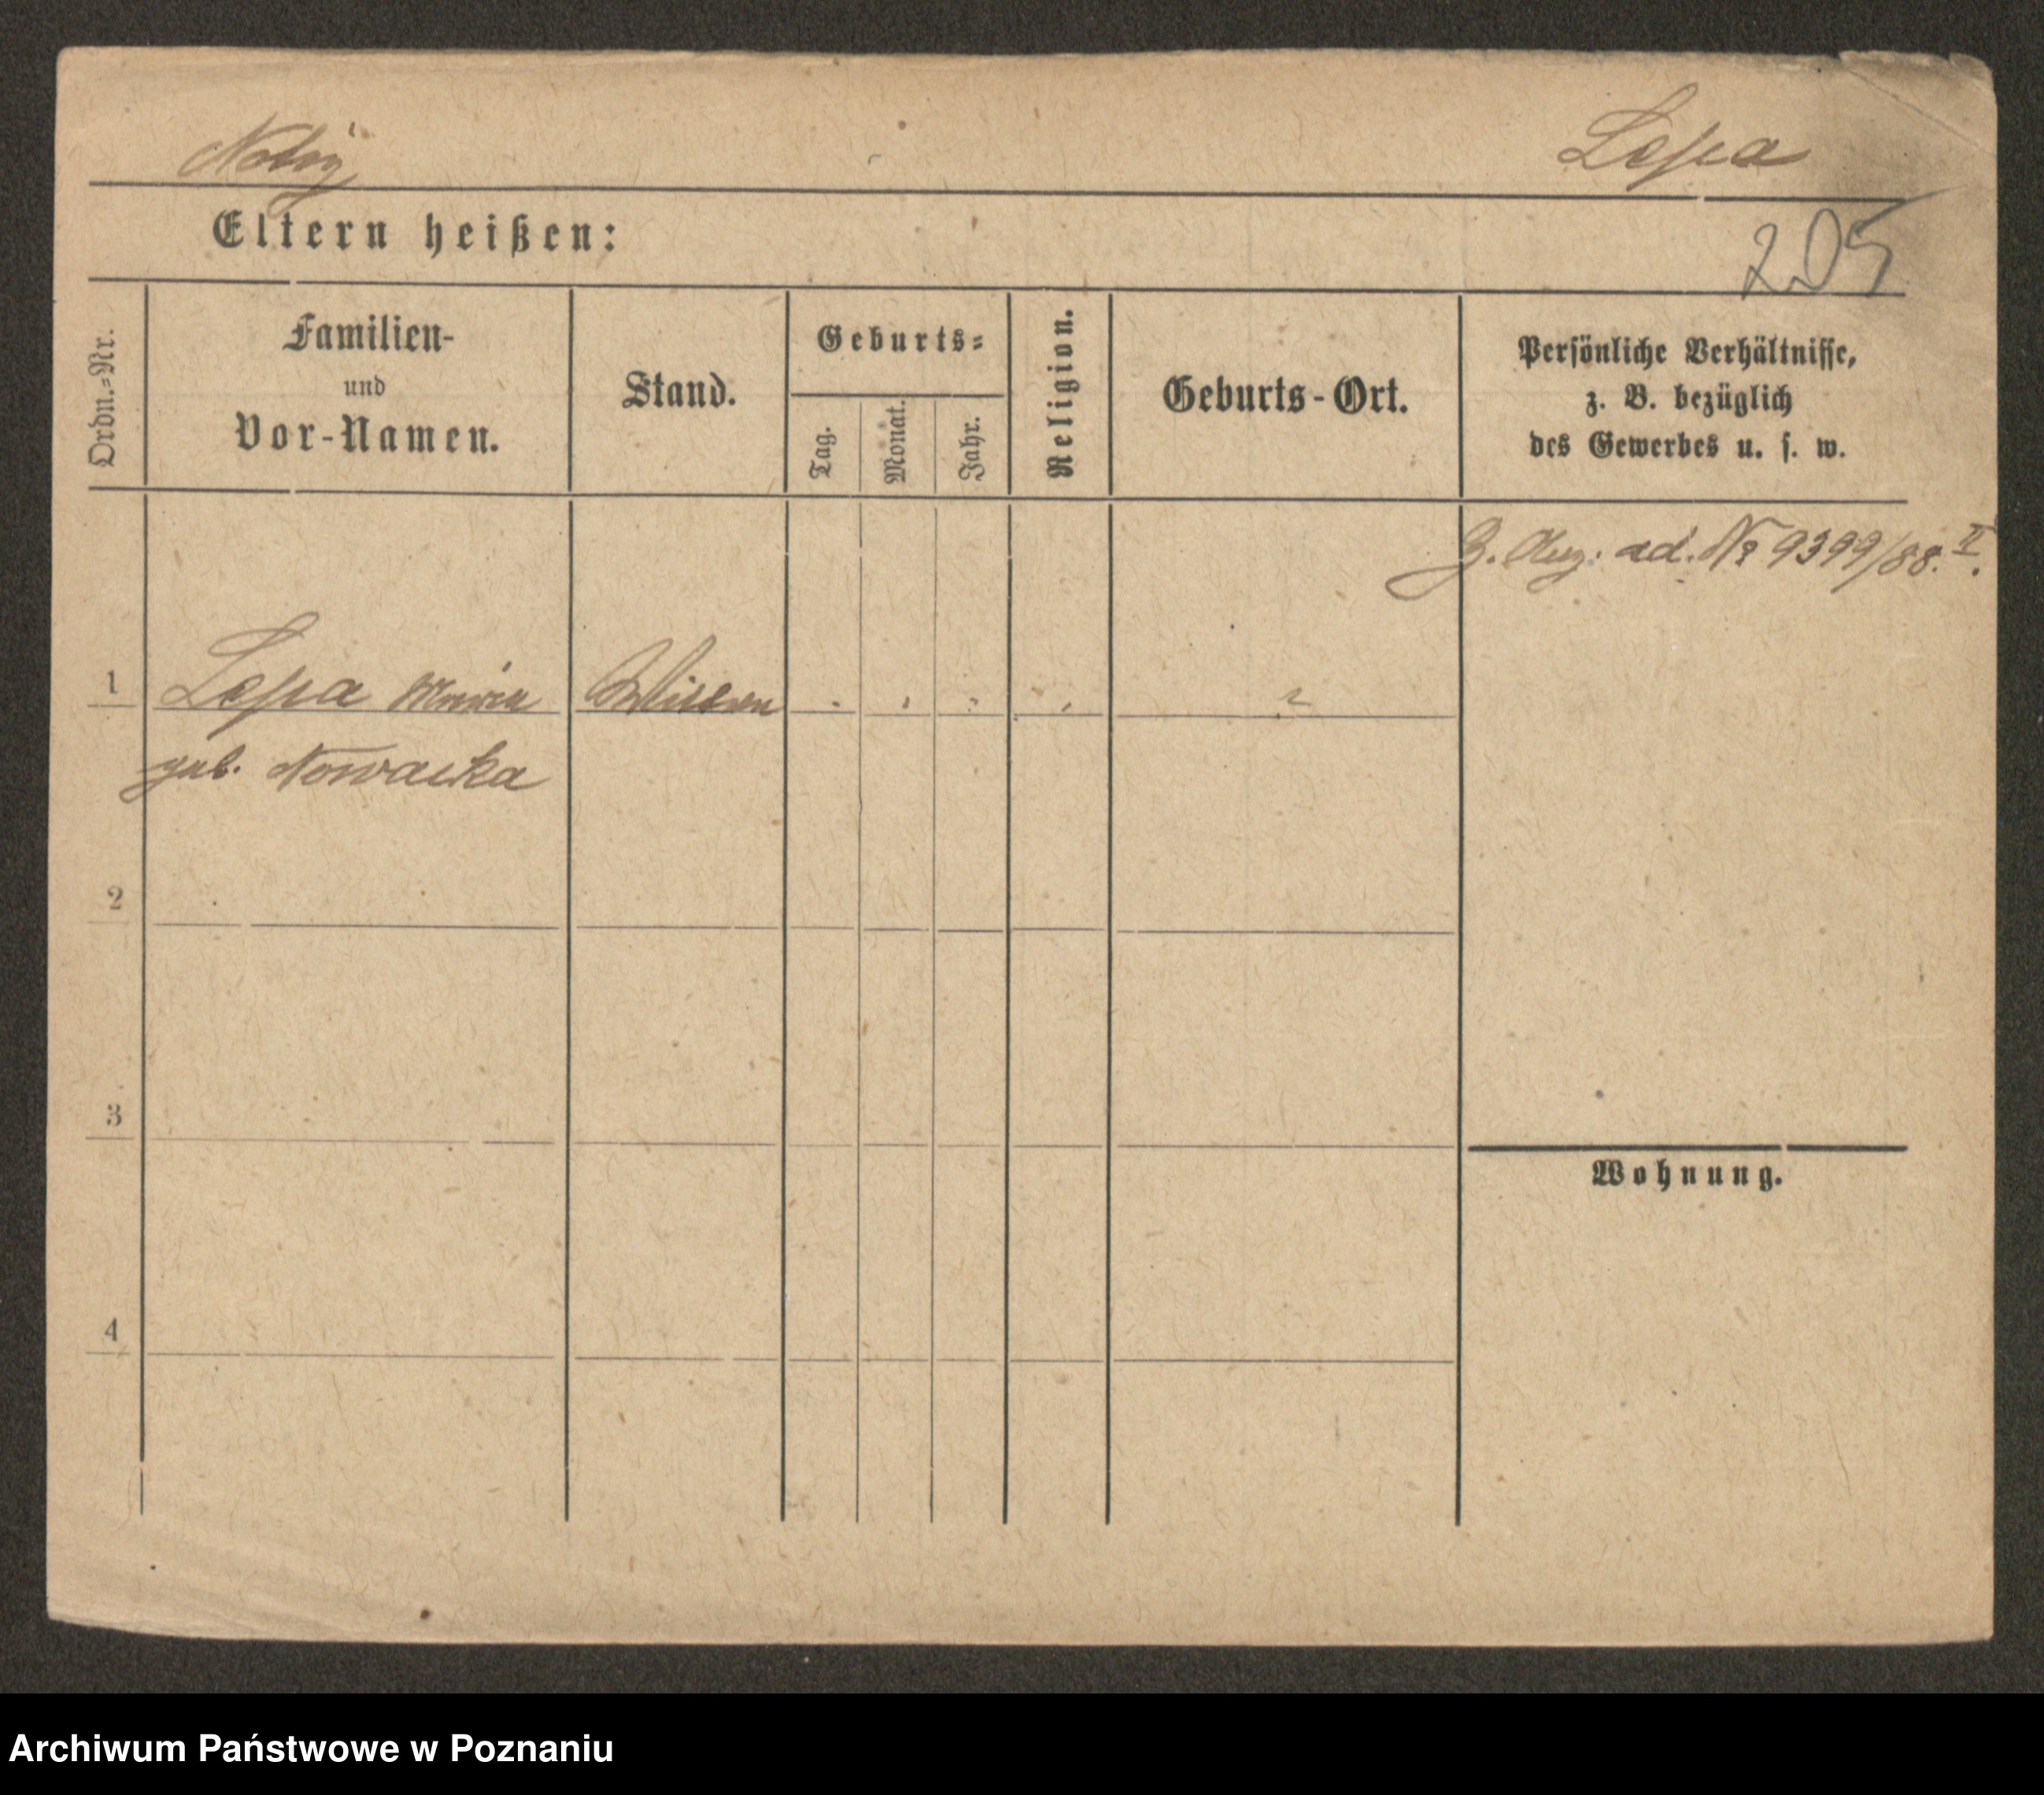 Notiz Lepa
Eltern heißen:
205
Ordn.=Nr.
Familien-
und
Vor-Namen.
Stand.
Geburts=
Tag.
Monat.
Jahr.
Religion.
Geburts-Ort.
Persönliche Verhältnisse,
z. B. bezüglich
des Gewerbes u. s. w.
ad. No 9399/88. II.
1 Lepa Maria
geb. Nowacka
2
3
Wohnung.
4
Archiwum Państwowe w Poznaniu